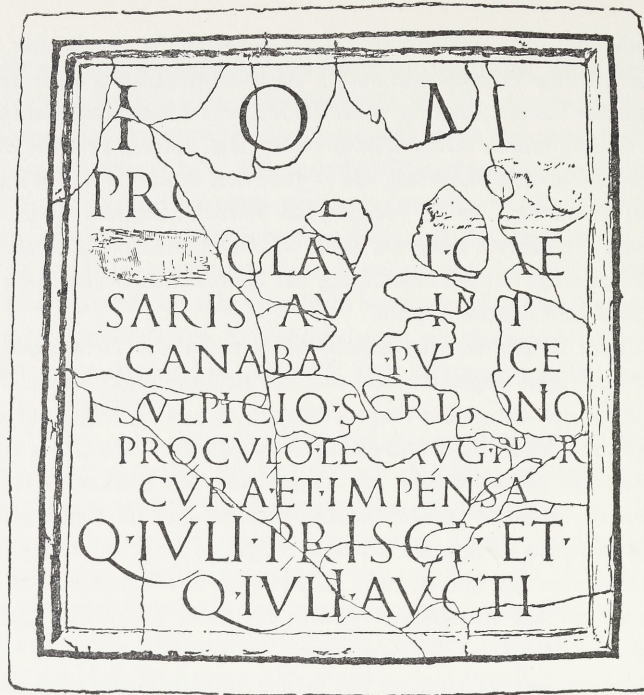 I O M
PRO
CLAV
SARIS AV IMP
CANABA PV CE
SVLPICIO·SCRIBONO
PROCVLO·LE AVG·P R
CVRA·ET·IMPENSA
Q·IVLI·PRISCI·ET·
Q·IVLI·AVCTI